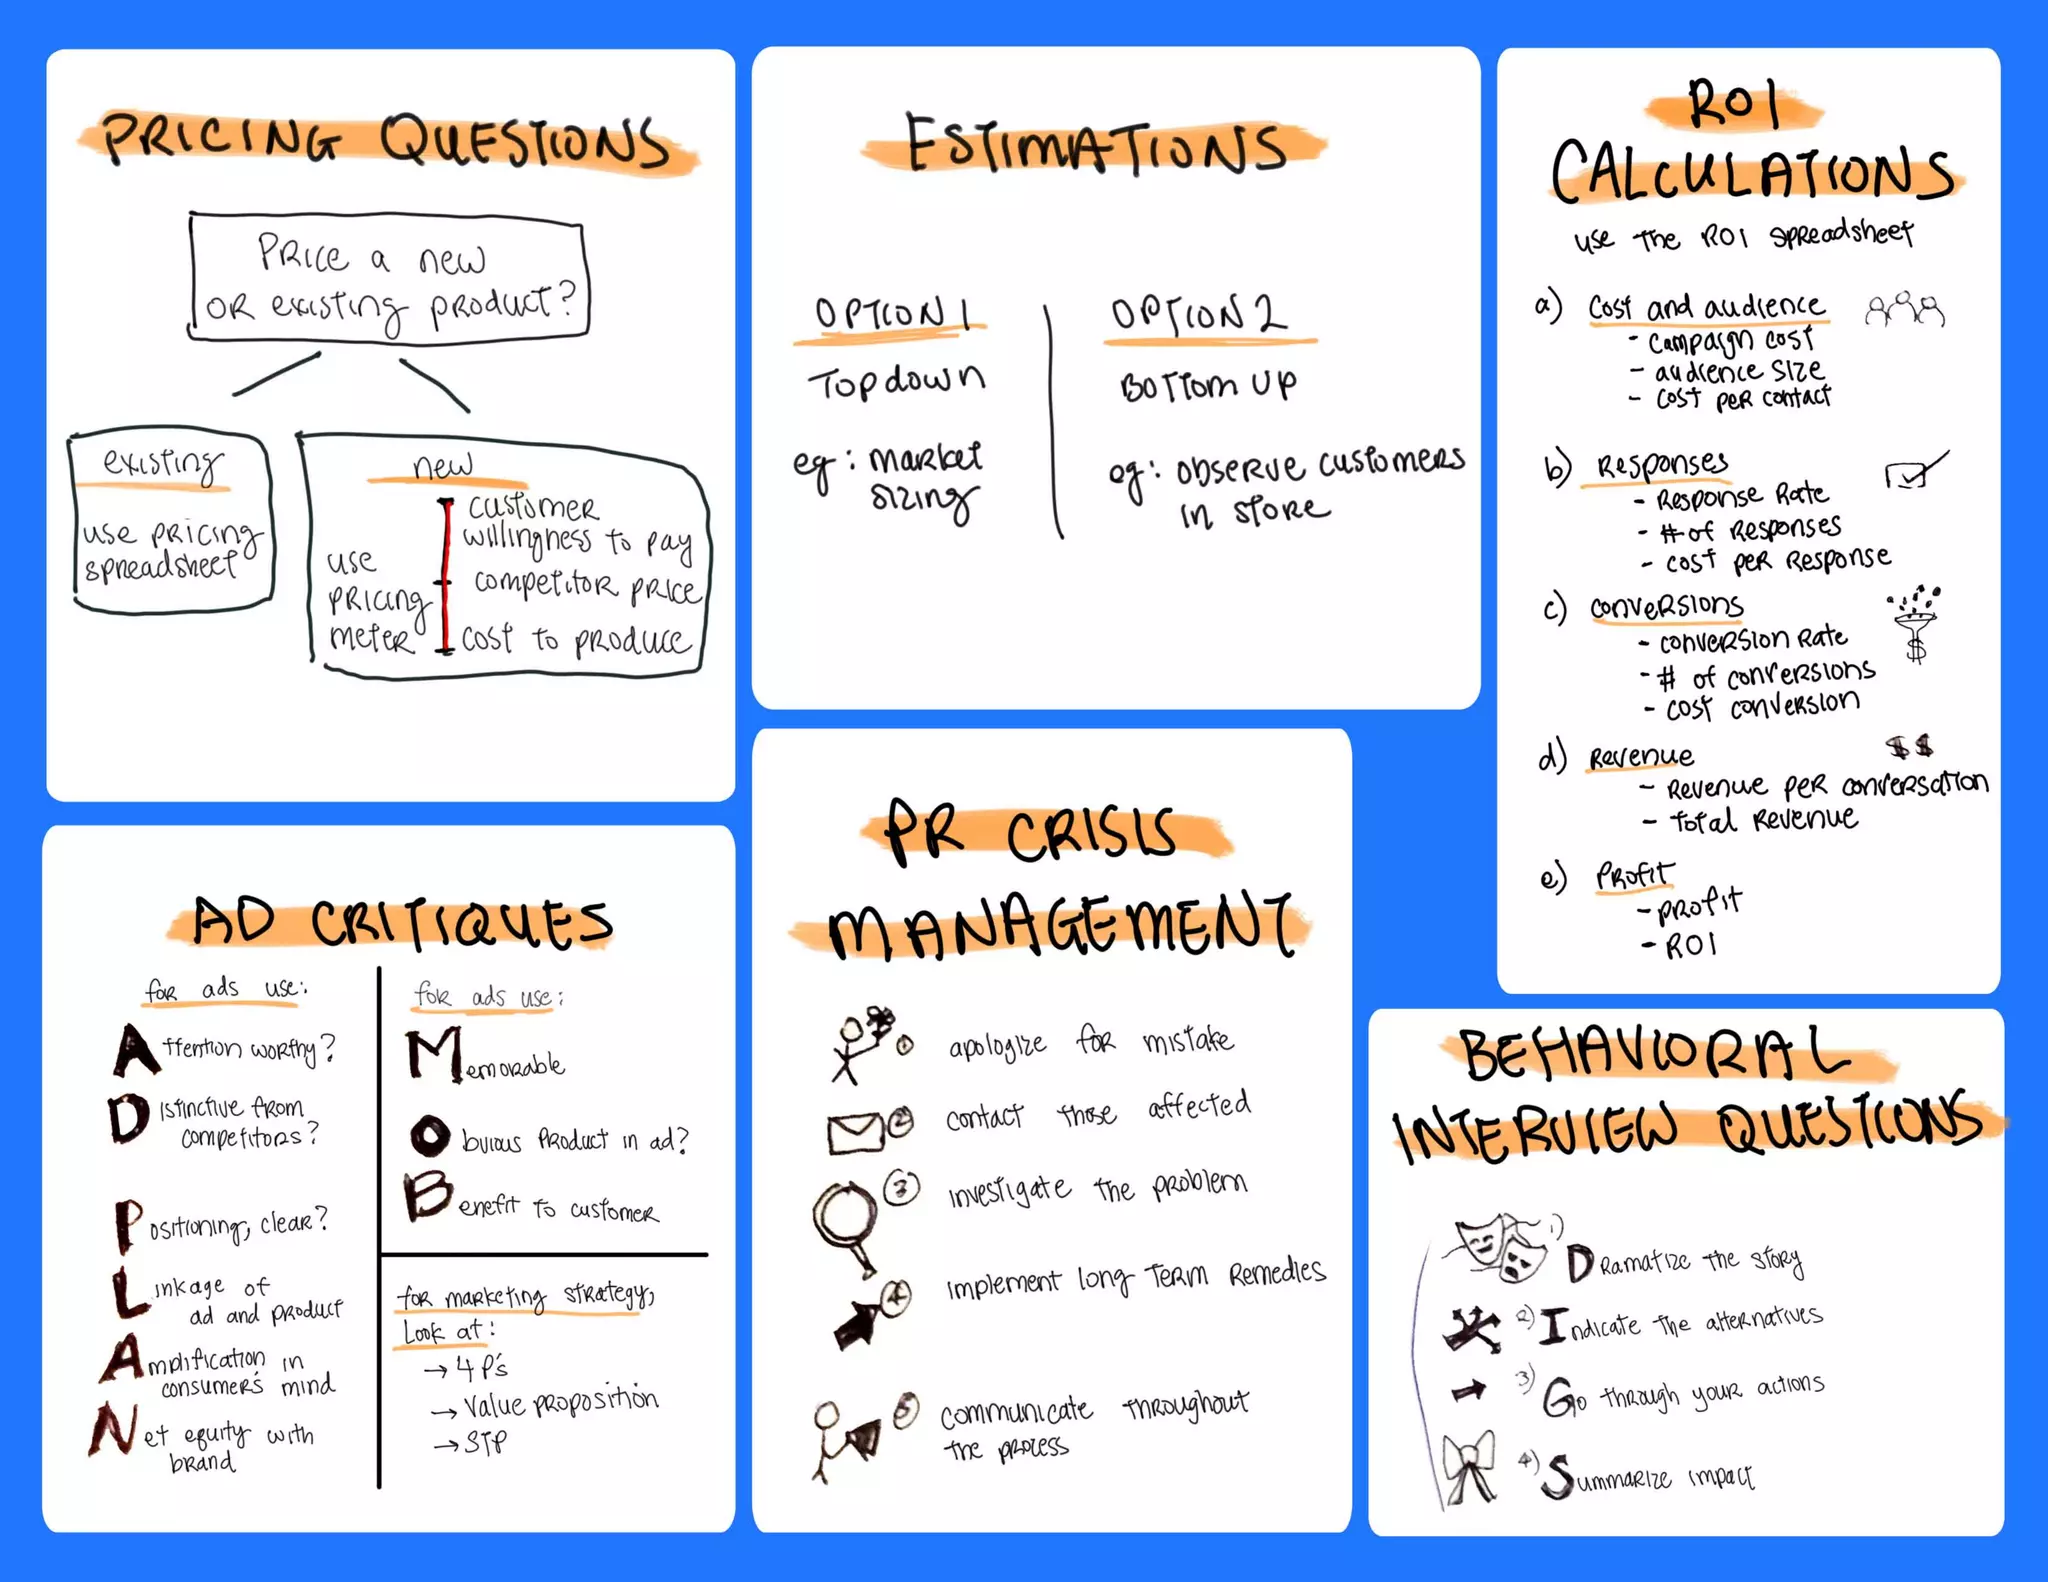 PRICING QUESTIONS
PRICE a new
OR existing product?
existing
use pricing
spreadsheet
new
use
pricing
meter
customer
willingness to pay
competitor price
cost to produce
ESTIMATIONS
OPTION 1
Top down
eg: market
sizing
OPTION 2
Bottom up
eg: observe customers
in store
ROI
CALCULATIONS
use the ROI spreadsheet
a) Cost and audience
- campaign cost
- audience size
- cost per contact
b) Responses
- Response Rate
- # of Responses
- cost per Response
c) conversions
- conversion Rate
- # of conversions
- cost conversion
d) Revenue
$$
- Revenue per conversation
- total Revenue
$
e) Profit
- profit
- ROI
AD CRITIQUES
for ads use:
Attention worthy?
Distinctive from
competitors?
Positioning, clear?
Linkage of
ad and product
Amplification in
consumer's mind
Net equity with
brand
for ads use:
Memorable
Obvious Product in ad?
Benefit to customer
for marketing strategy,
Look at:
→ 4 P's
→ Value proposition
→ STP
PR CRISIS
MANAGEMENT
① apologize for mistake
② contact those affected
③ investigate the problem
④ implement long term remedies
⑤ communicate throughout
the process
BEHAVIORAL
INTERVIEW QUESTIONS
1) Dramatize the story
2) Indicate the alternatives
3) Go through your actions
4) Summarize impact